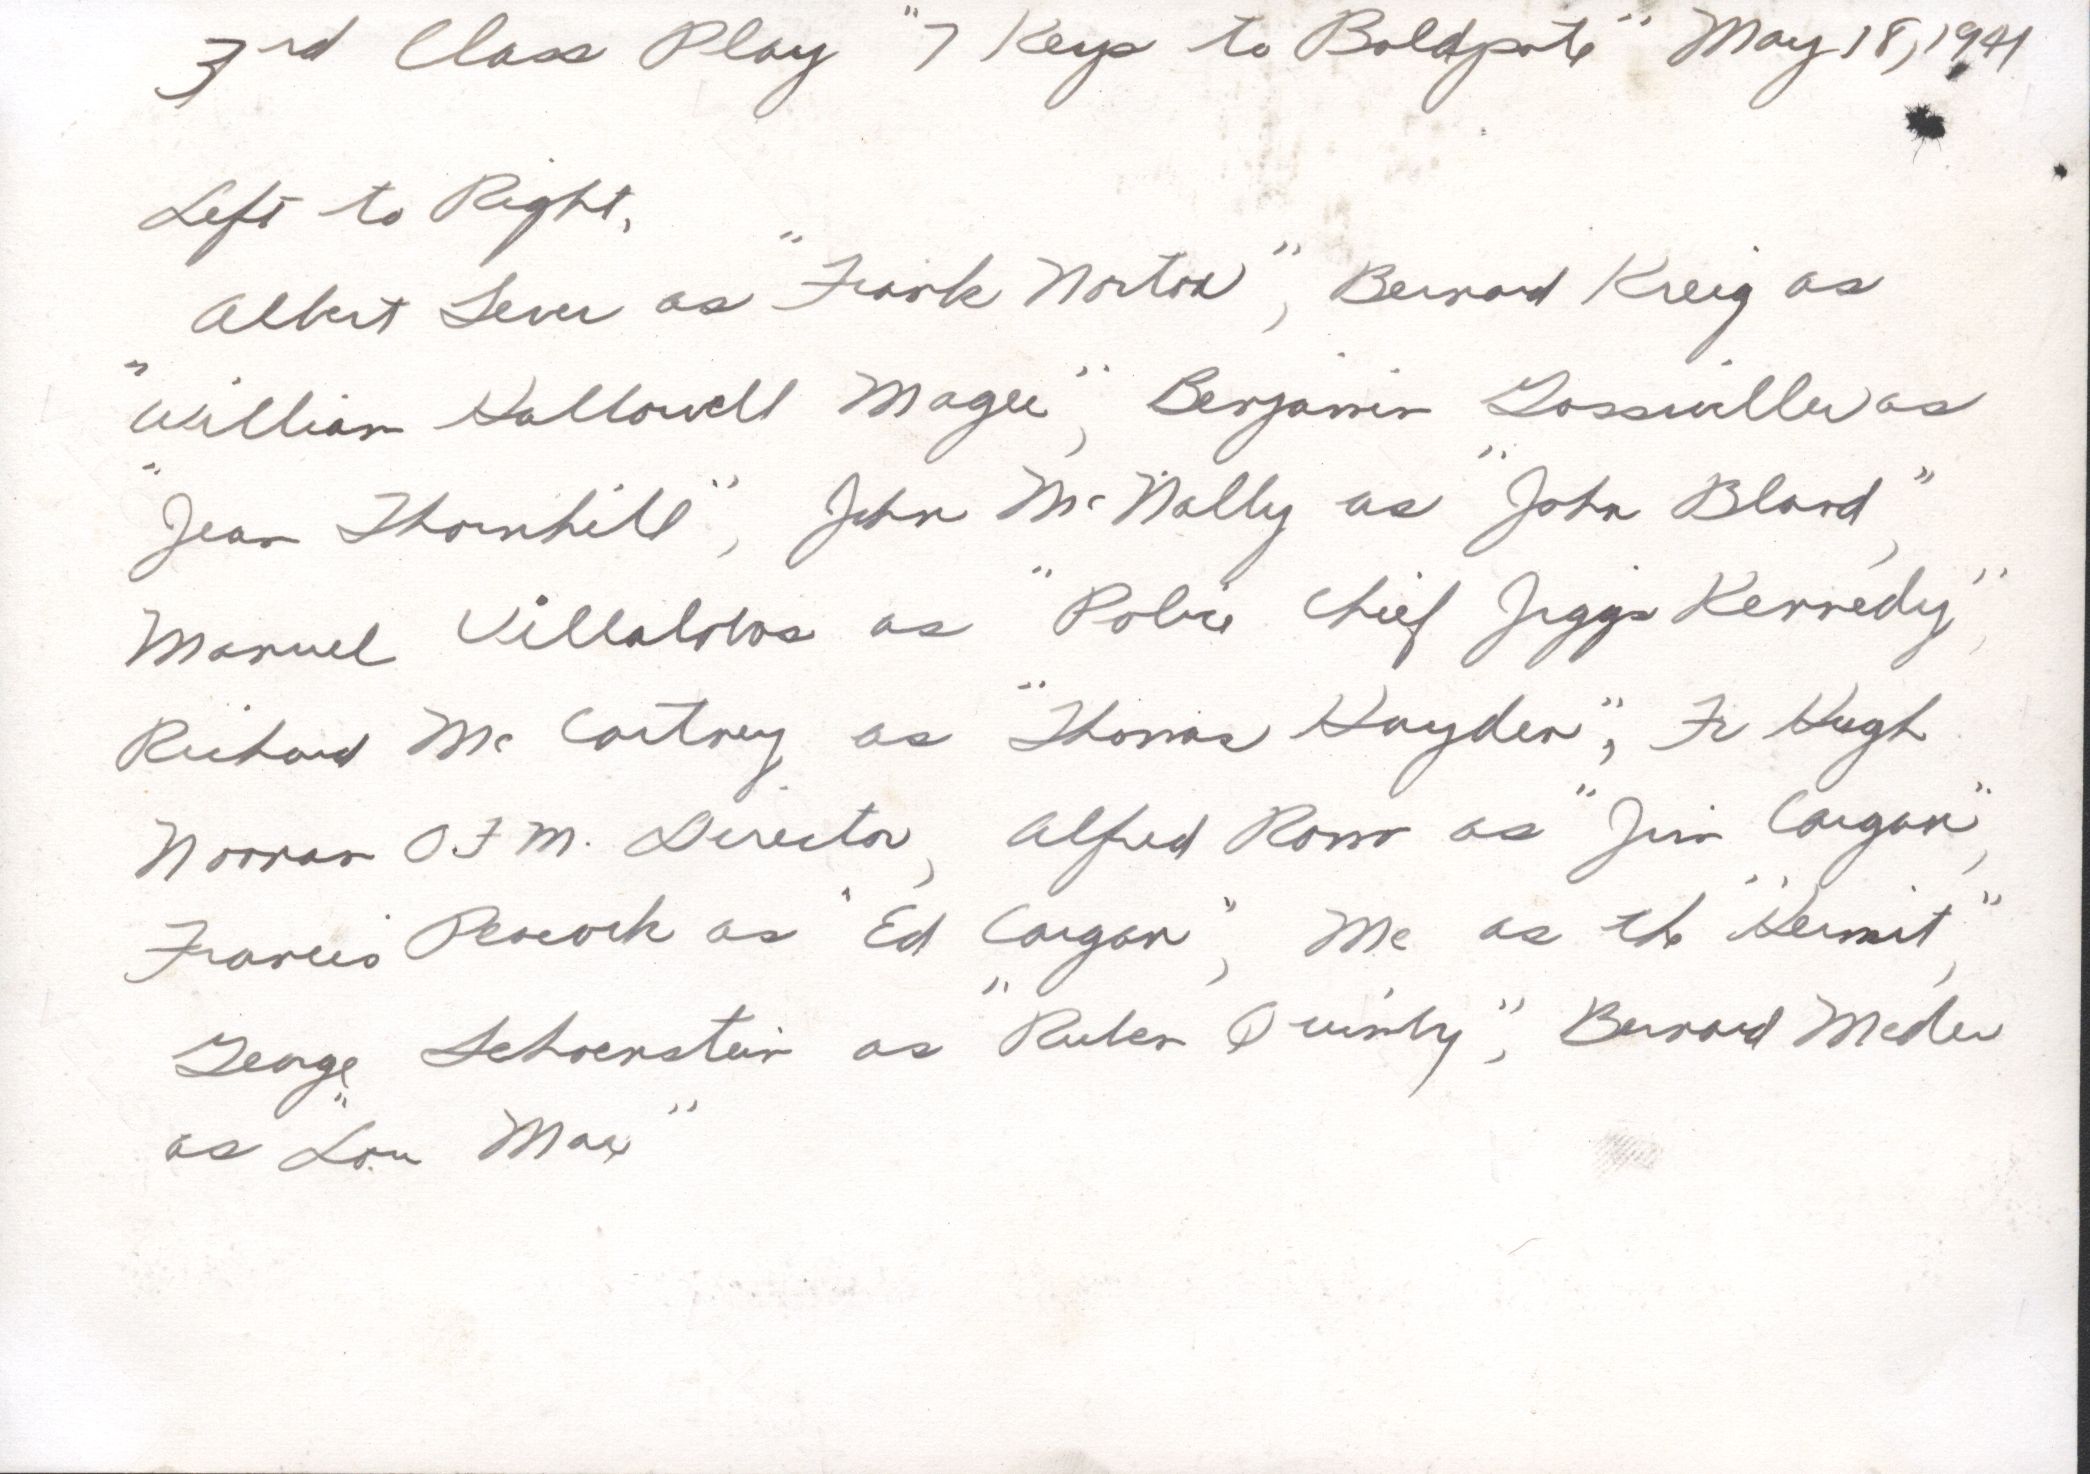 3rd Class Play "7 Keys to Baldpate" May 18, 1941
Left to Right,
Albert Lever as "Frank Norton", Bernard Kreig as
"William Hallowell Magee", Benjamin as
"Jean Thornhill", John McNally as "John Bland",
Manuel Villalobos as "Police Chief Jiggs Kennedy",
Richard McCartney as "Thomas Hayden", Fr Hugh
Noonan O F M. Director, Alfred Romo as "Jim Cargan",
Francis Peacock as "Ed Cargan", Me as the "Hermit",
George Schoenstein as "Ruben Quimby", Bernard Meder
as "Lou Max"